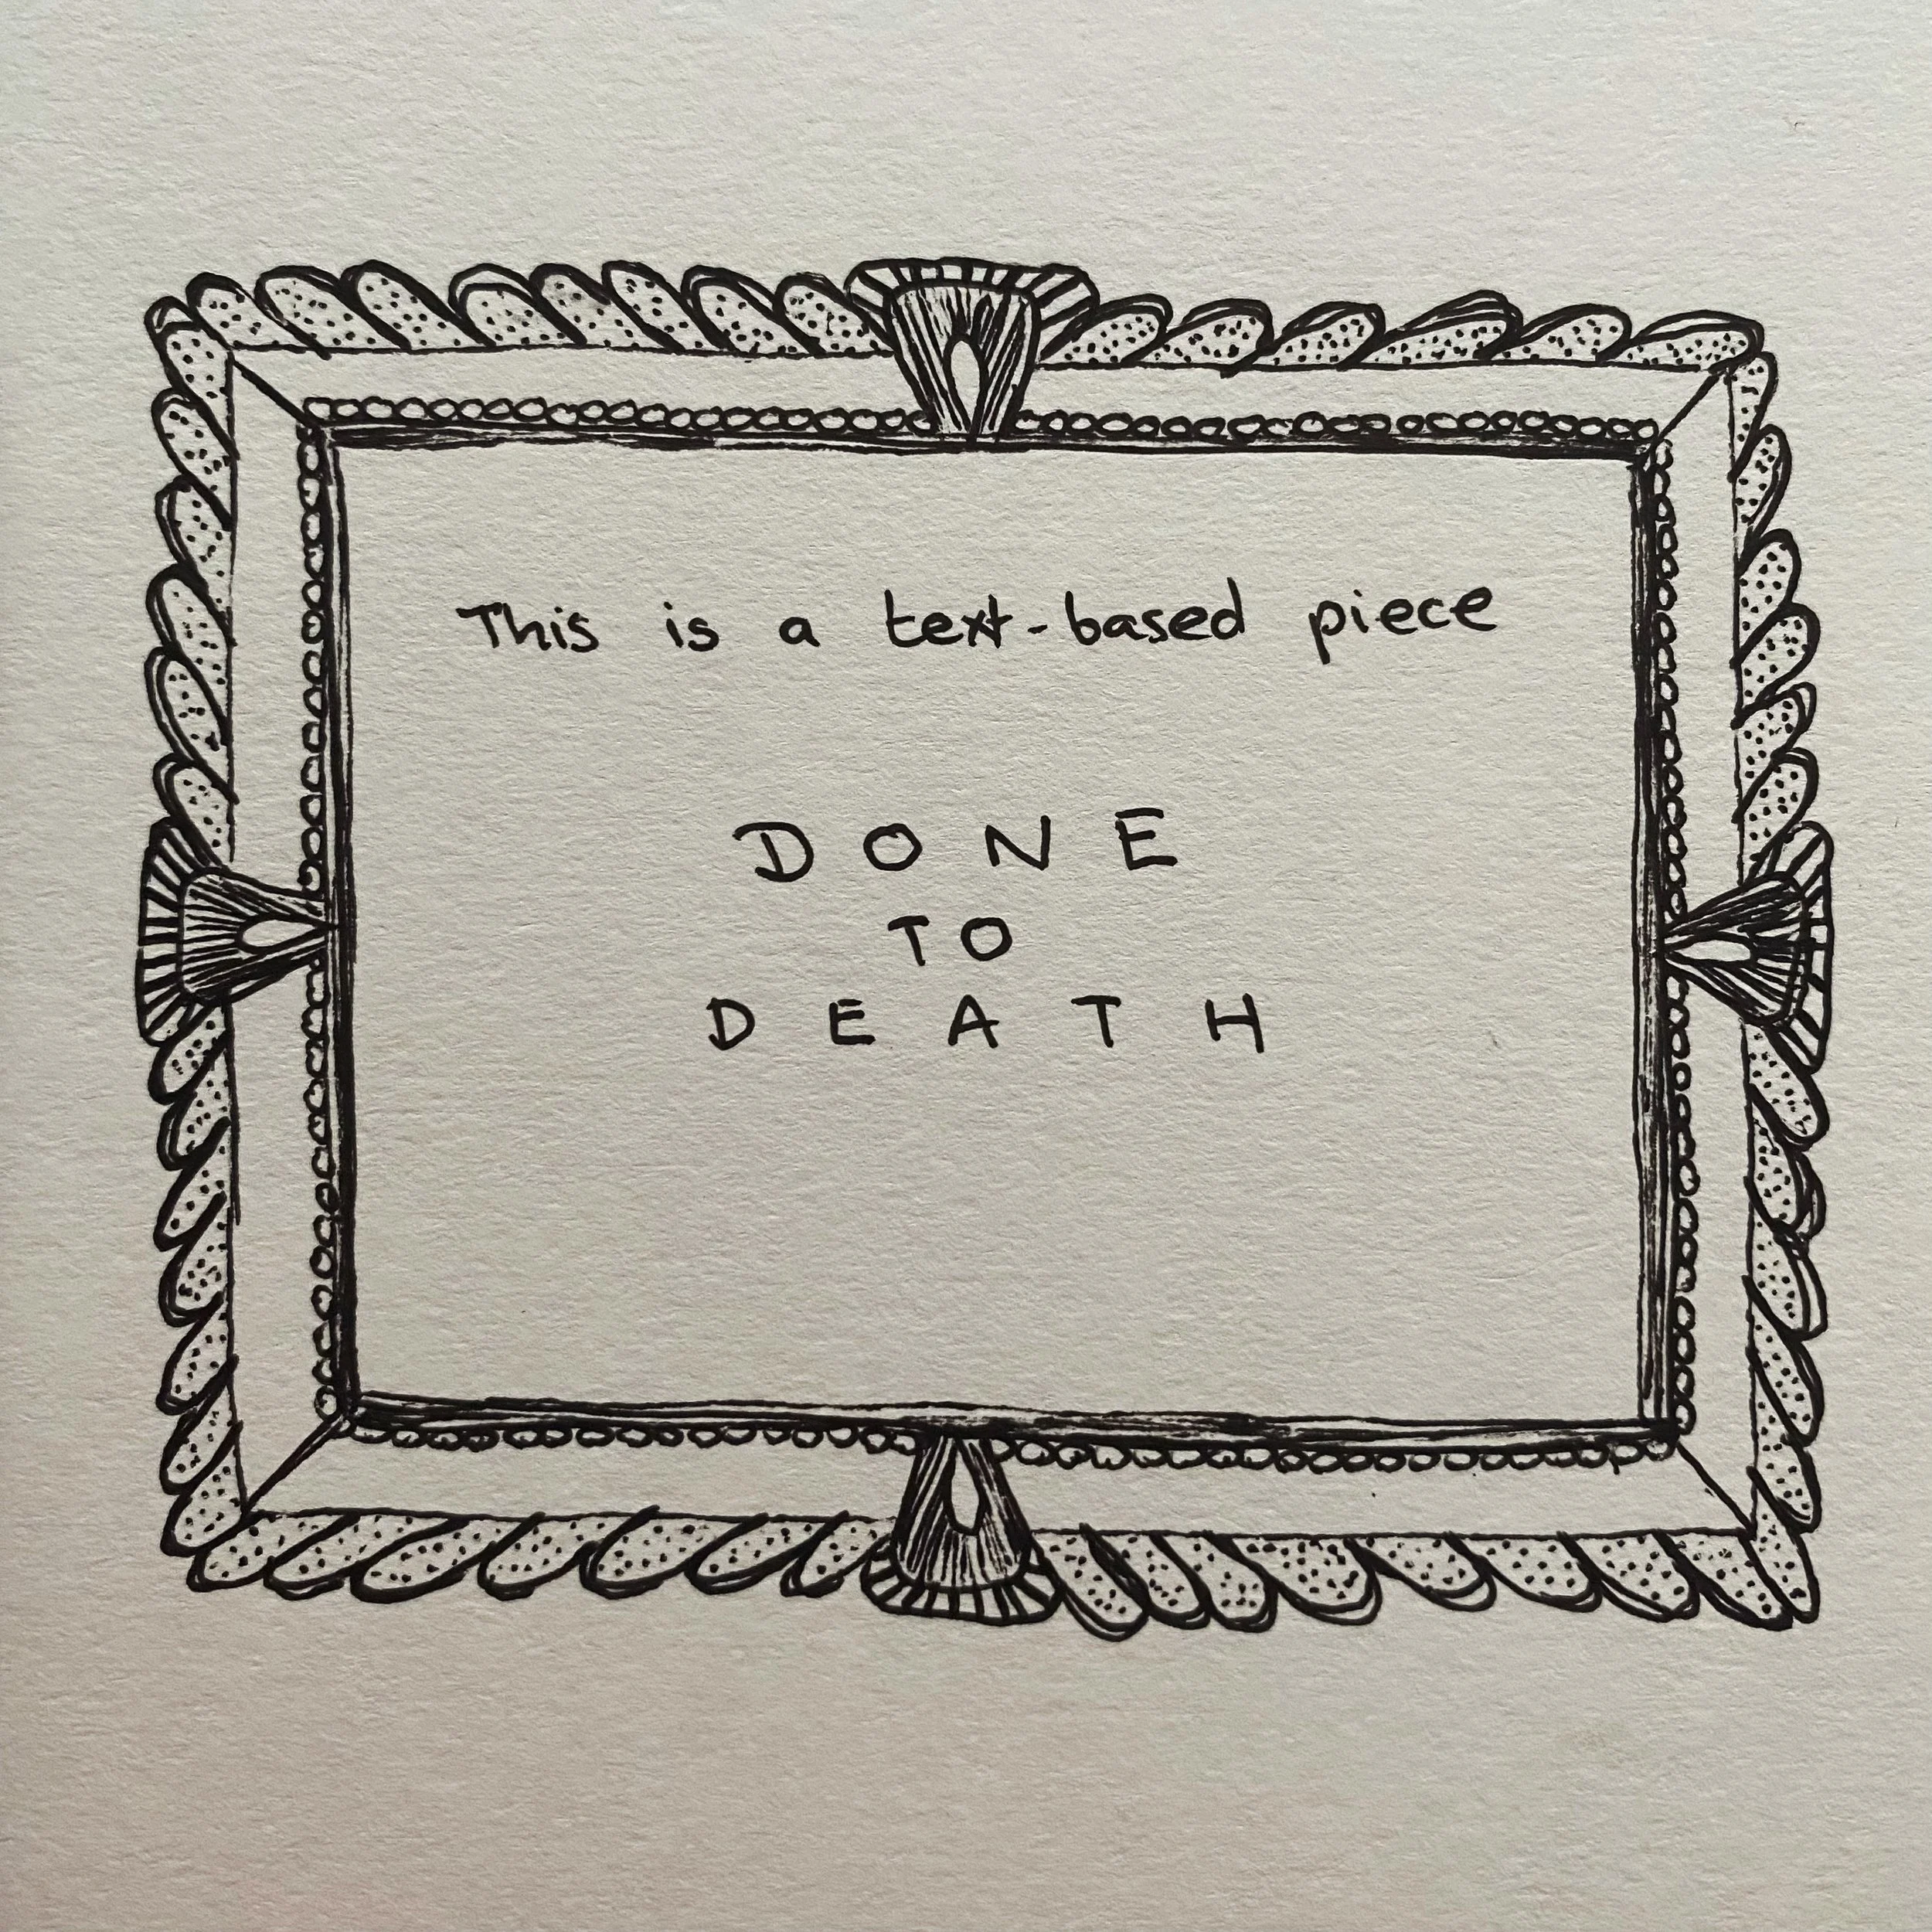 This is a text-based piece
DONE
TO
DEATH